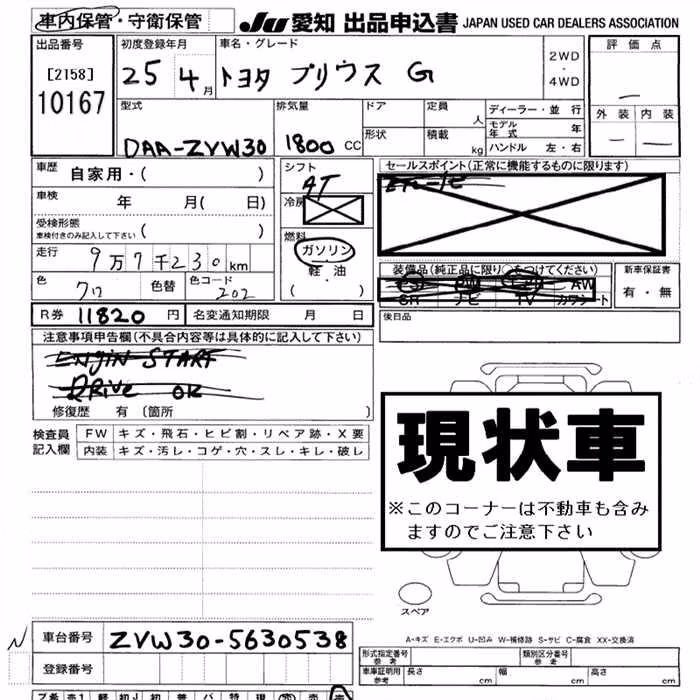 車内保管・守衛保管
JU 愛知 出品申込書 JAPAN USED CAR DEALERS ASSOCIATION
出品番号
[2158]
10167
初度登録年月
25 4月
車名・グレード
トヨタ プリウス G
2WD
・
4WD
評価点
—
外装 内装
— —
型式
DAA-ZVW30
排気量
1800 CC
ドア
形状
定員
人
積載
kg
ディーラー・並 行
モデル年式 年
ハンドル 左・右
車歴
自家用・( )
車検
年 月( 日)
受検形態
車検付きのみ記入して下さい ( )
走行
9万7千230km
色
クロ
色替
色コード
202
シフト
AT
冷房
燃料
ガソリン
軽・油
( )
セールスポイント(正常に機能するものに限ります)
装備品(純正品に限り○をつけてください)
PS PW AW
SR ナビ TV カワシート
新車保証書
有・無
R券 11820 円
名変通知期限 月 日
後日品
注意事項申告欄(不具合内容等は具体的に記入して下さい)
ENGIN START
DRive OK
修復歴 有(箇所 )
検査員
記入欄
FW キズ・飛石・ヒビ割・リペア跡・X要
内装 キズ・汚レ・コゲ・穴・スレ・キレ・破レ
現状車
※このコーナーは不動車も含み
ますのでご注意下さい
スペア
A-キズ E-エクボ U-凹み W-補修跡 S-サビ C-腐食 XX-交換済
N
車台番号 ZVW30-5630538
登録番号
形式指定番号
参考
類別区分番号
参考
車庫証明用
参考
長さ cm
幅 cm
高さ cm